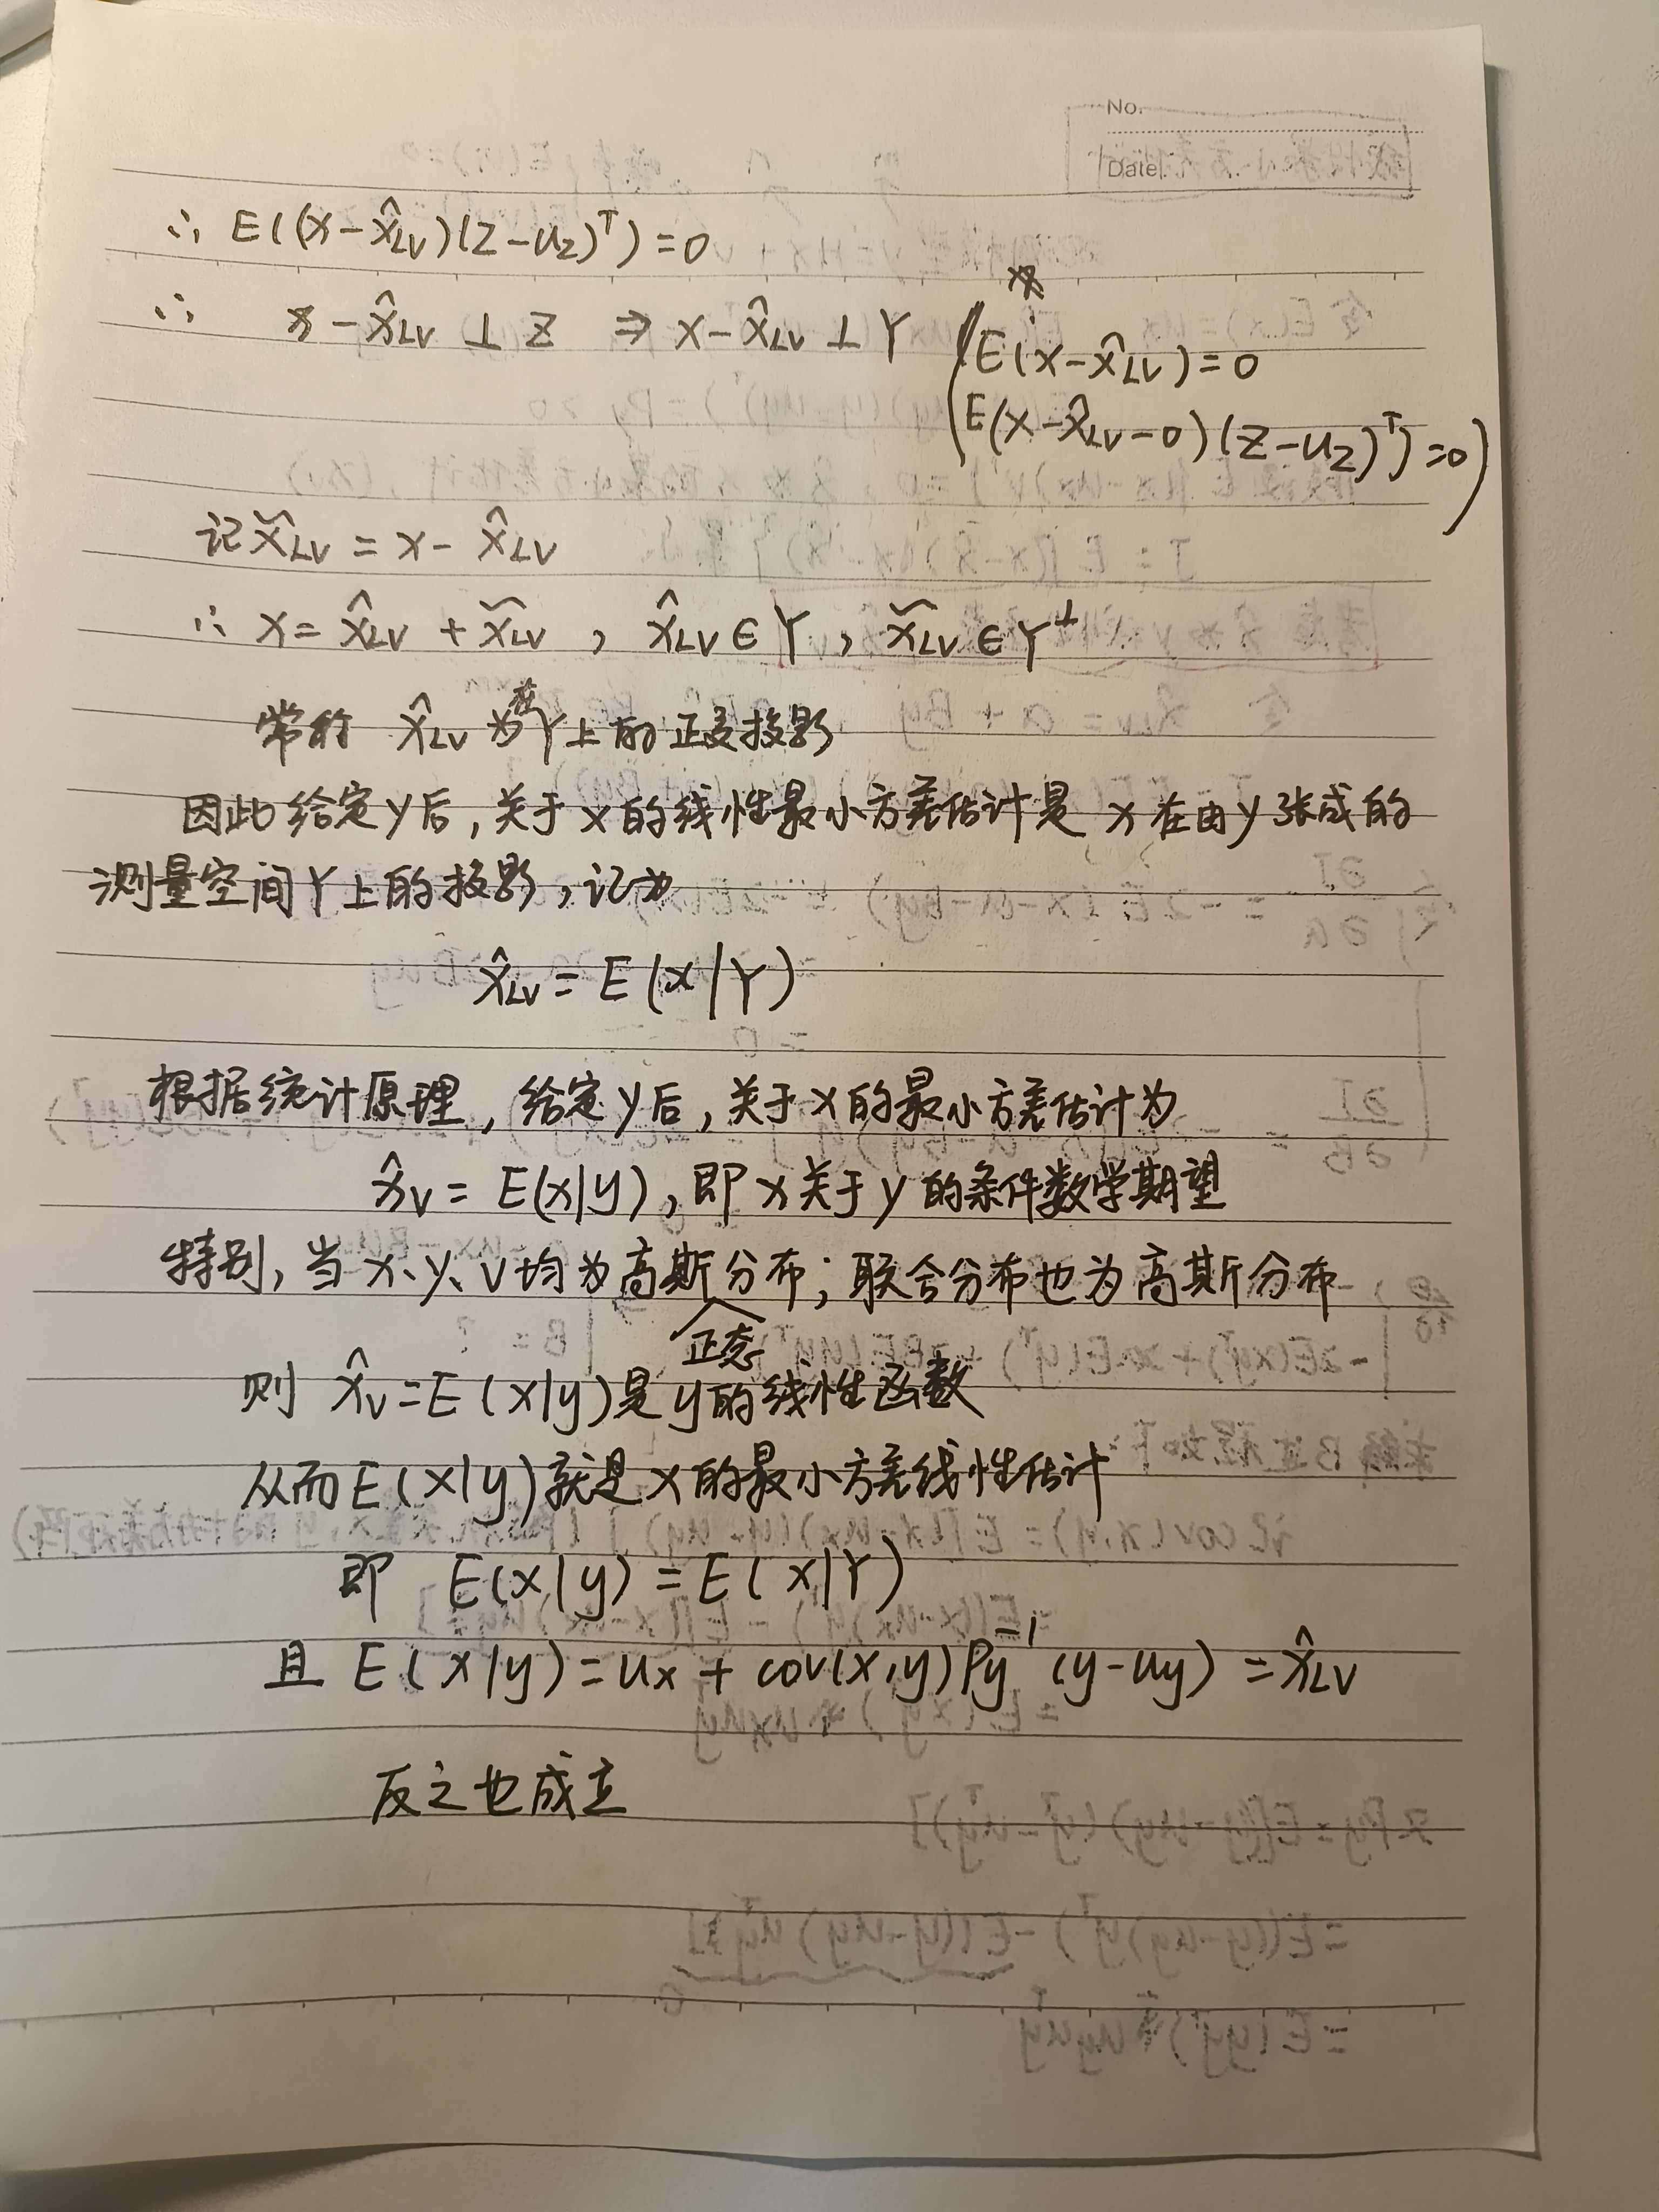 No.
Date
∴ E((x-x̂_LV)(Z-u_Z)^T)=0
∴ x-x̂_LV ⊥ Z ⇒ x-x̂_LV ⊥ Y
(E(x-x̂_LV)=0
E(x-x̂_LV-0)(Z-u_Z)^T)=0)
记x̃_LV = x-x̂_LV
∴ x=x̂_LV+x̃_LV，x̂_LV∈Y，x̃_LV∈Y^⊥
常称 x̂_LV为在Y上的正交投影
因此给定y后，关于x的线性最小方差估计是 x在由y张成的
测量空间Y上的投影，记为
x̂_LV=E(x|Y)
根据统计原理，给定y后，关于x的最小方差估计为
x̂_V=E(x|y)，即x关于y的条件数学期望
特别，当x、y、v均为高斯分布；联合分布也为高斯分布
正态
则 x̂_V=E(x|y)是y的线性函数
从而E(x|y)就是x的最小方差线性估计
即 E(x|y)=E(x|Y)
且 E(x|y)=u_x+cov(x,y)P_y^{-1}(y-u_y)=x̂_LV
反之也成立